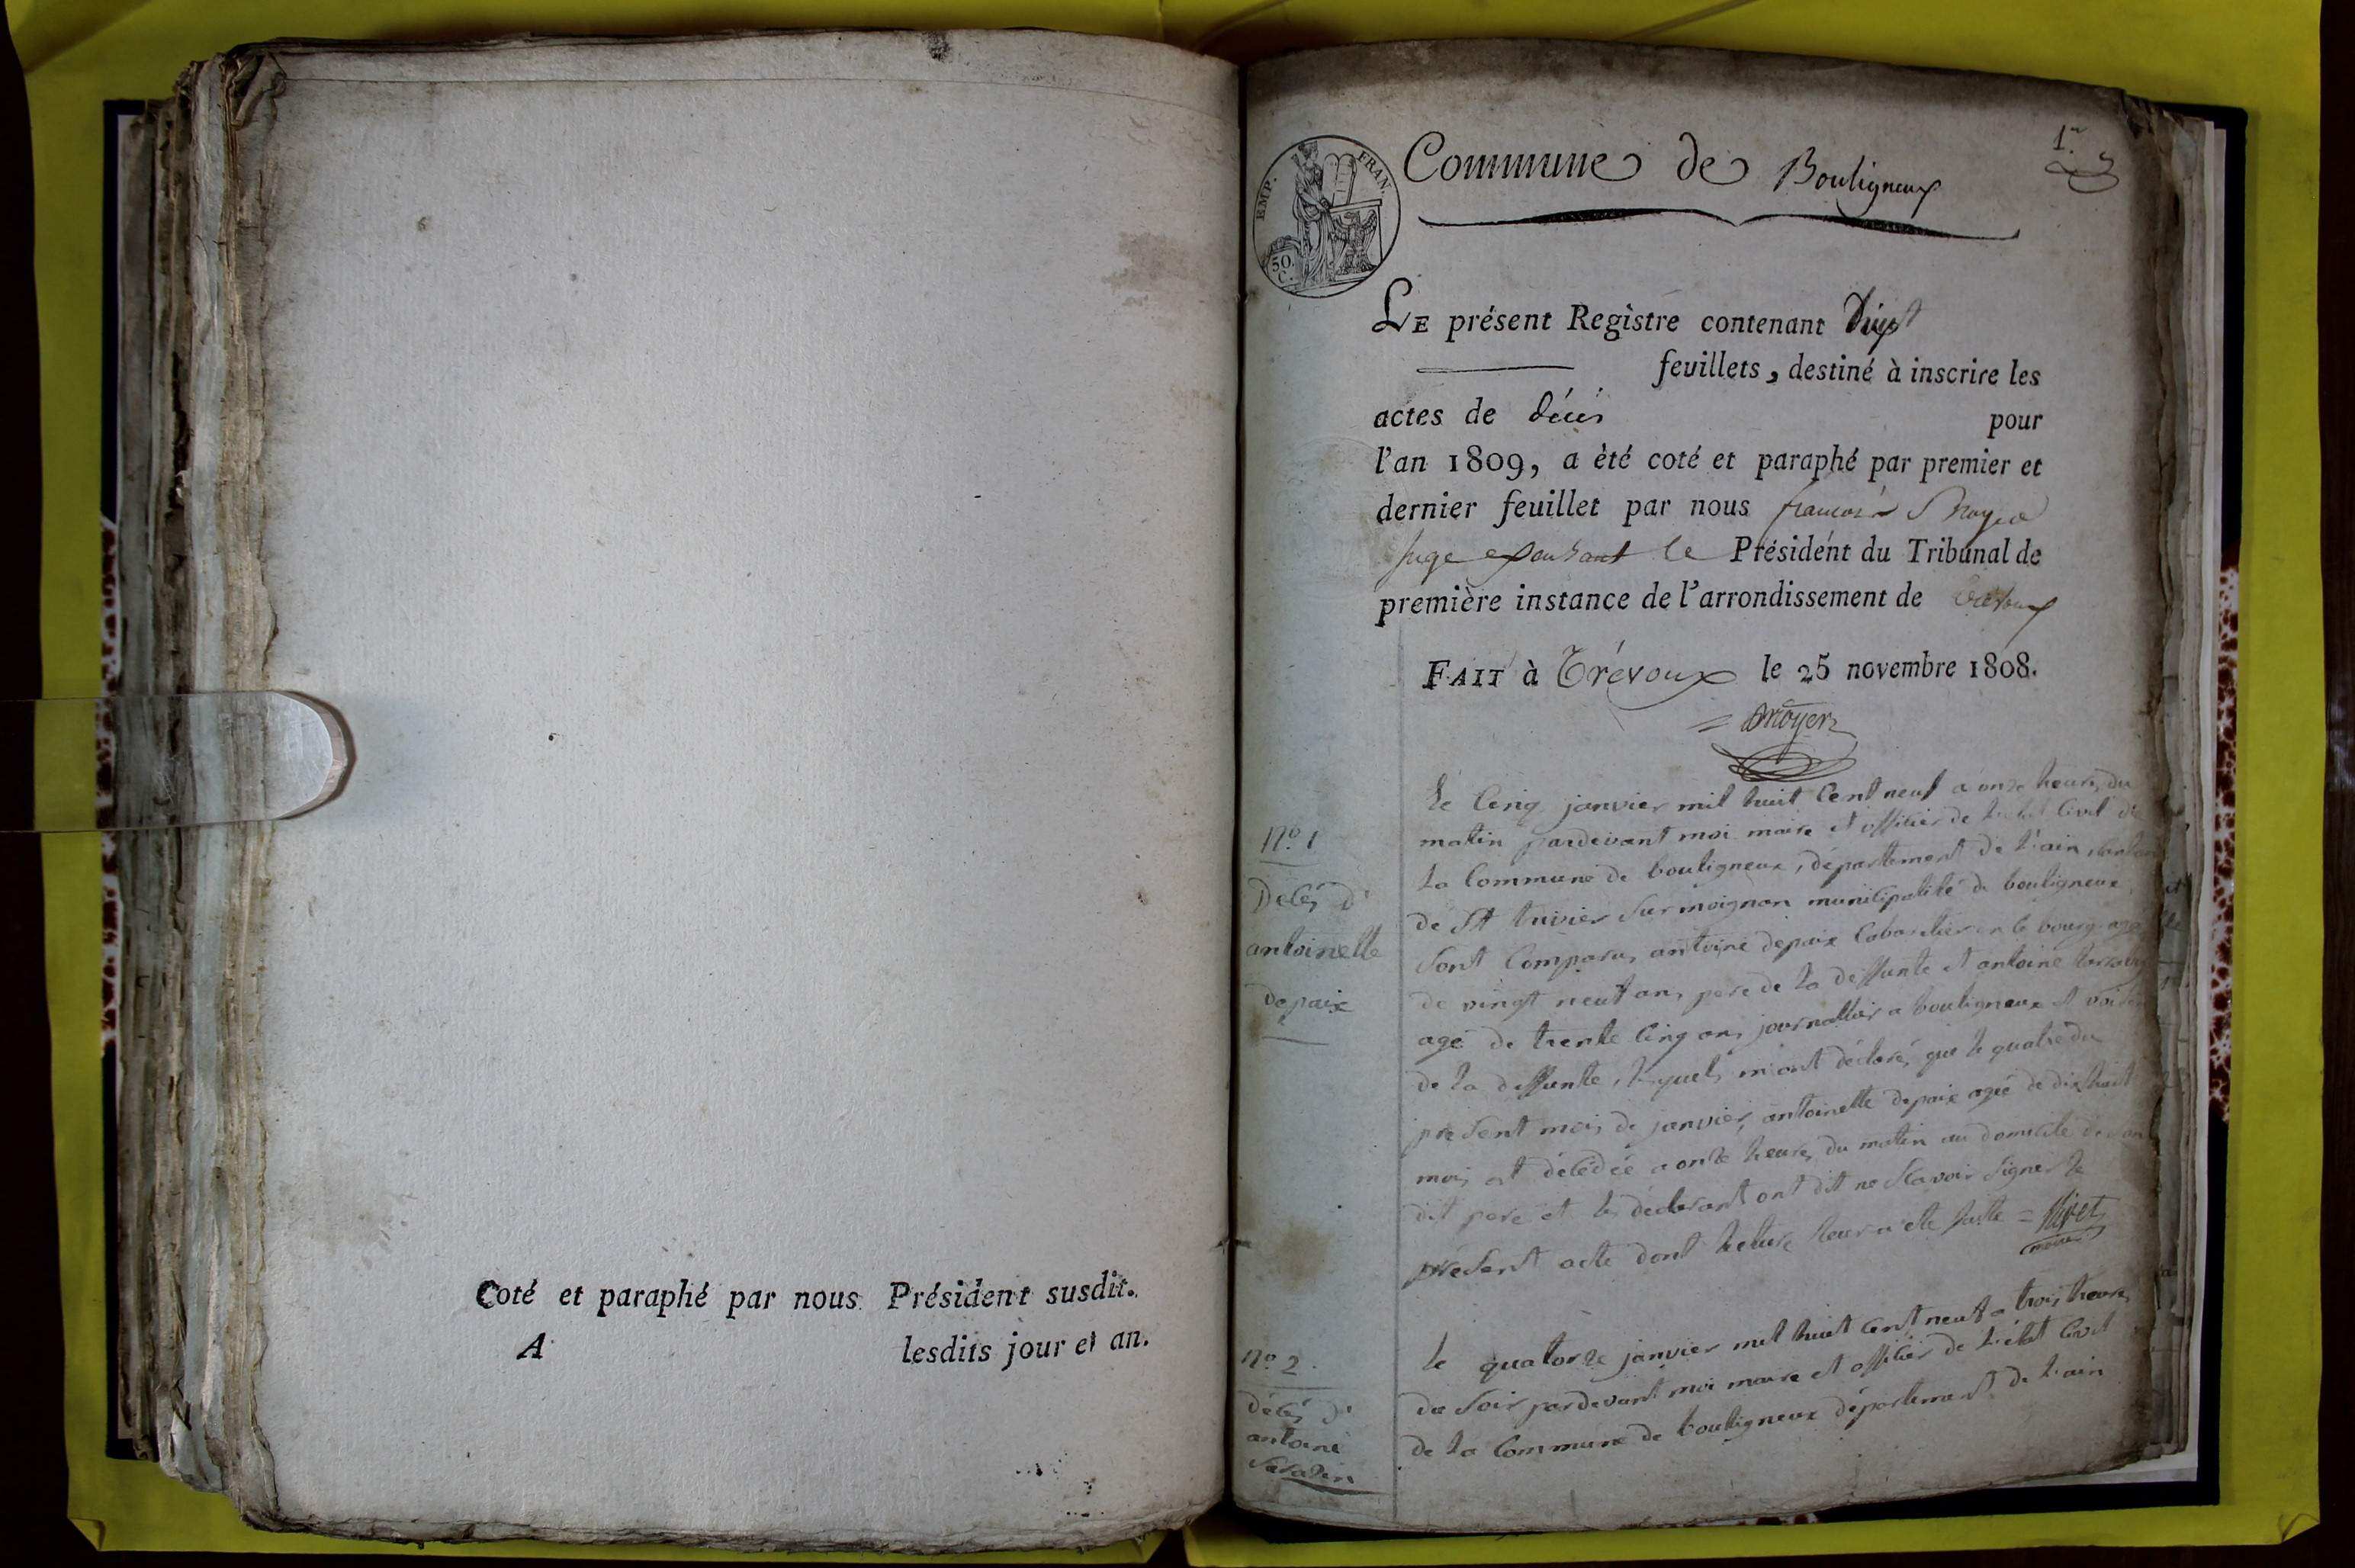 Coté et paraphé par nous Président susdit.
A lesdits jour et an.
1.er
EMP. FRAN.
50. C.
Commune de Bouligneux
LE présent Registre contenant
feuillets, destiné à inscrire les
actes de décès pour
l'an 1809, a été coté et paraphé par premier et
dernier feuillet par nous françois
juge le Président du Tribunal de
première instance de l'arrondissement de trevoux
FAIT à Trévoux le 25 novembre 1808.
N.o 1
Décès d'
antoinette
depaix
le Cinq janvier mil huit Cent neuf a onze heures du
matin pardevant moi maire et officier de l'etat Civil de
la Commune de bouligneux, département de l'ain, canton
de St trivier Sur moignan municipalité de bouligneux
Sont Comparus antoine depaix Cabaretier en le bourg agé
de vingt neuf ans pere de la deffunte et antoine
agé de trente Cinq ans journallier a bouligneux et voisin
de la deffunte, lesquels m'ont déclaré que le quatre du
present mois de janvier, antoinette depaix agée de dix huit
mois est décédée a onze heures du matin au domicile de son
dit pere et les déclarant ont dit ne Scavoir Signer le
présent acte dont lecture leur a ete faite = Rivet
maire
N.o 2.
décès d'
antoine
Saladin
le quatorze janvier mil huit Cent neuf a trois heures
du Soir pardevant moi maire et officier de l'état Civil
de la Commune de bouligneux département de l'ain